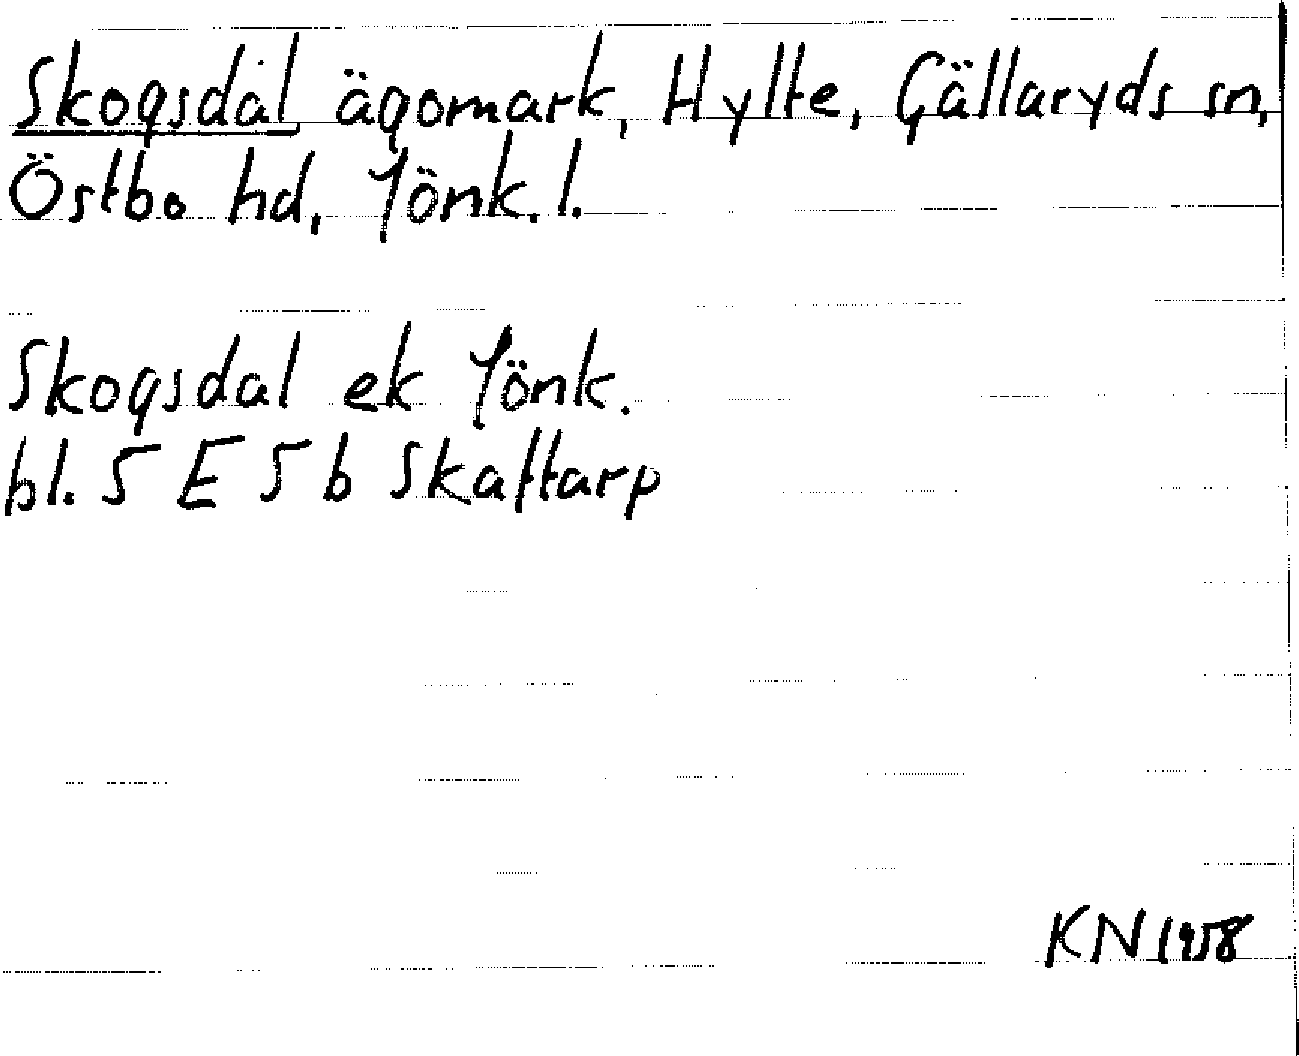 Skogsdal ägomark, Hylte, Gällaryds sn,
Östbo hd, Jönk. l.
Skogsdal ek Jönk.
bl. 5 E 5 b Skaftarp
KN 1958